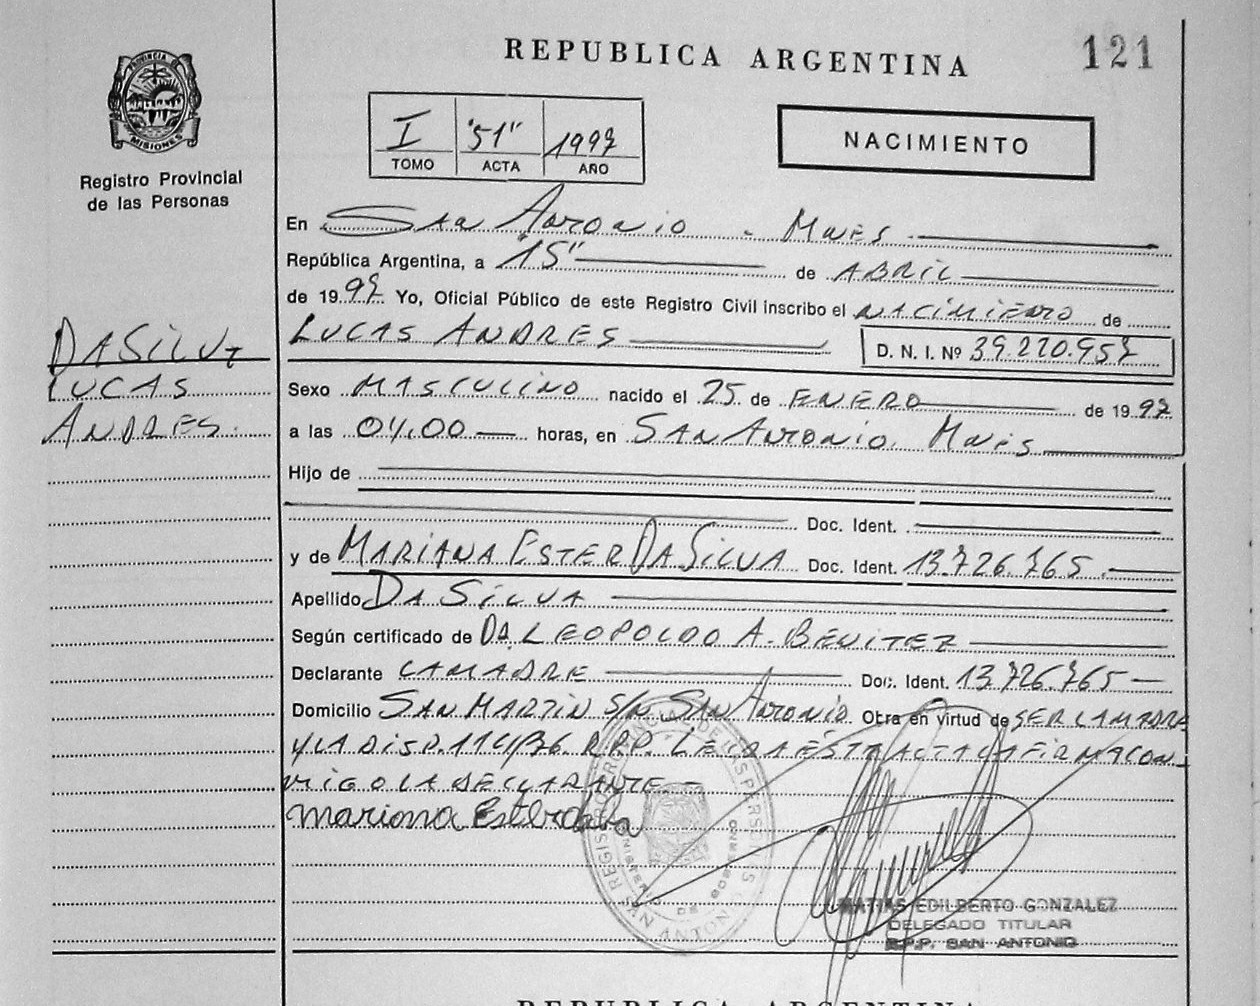 REPUBLICA ARGENTINA
121
PROVINCIA DE MISIONES
Registro Provincial
de las Personas
I "51" 1997
TOMO ACTA AÑO
NACIMIENTO
En San Antonio - Mnes
República Argentina, a "15" de ABRIL
de 1997 Yo, Oficial Público de este Registro Civil inscribo el NACIMIENTO de
LUCAS ANDRES D. N. I. Nº 39.220.957
DA SILVA
LUCAS
ANDRES.
Sexo MASCULINO nacido el 25 de ENERO de 1997
a las 04,00 horas, en SAN ANTONIO. Mnes
Hijo de
Doc. Ident.
y de MARIANA ESTER DA SILVA Doc. Ident. 13.726.765.
Apellido DA SILVA
Según certificado de DR. LEOPOLDO A. BENITEZ
Declarante LA MADRE Doc. Ident. 13.726.765
Domicilio SAN MARTIN S/N SAN ANTONIO Otra en virtud de SER LA MADRE
Y LA DISP. R.P.P. LEIDA ESTA ACTA LA FIRMA CON
MIGO LA DECLARANTE
Mariana Ester
REGISTRO PROVINCIAL DE LAS PERSONAS
MINISTERIO DE GOBIERNO
SAN ANTONIO
MATIAS EDILBERTO GONZALEZ
DELEGADO TITULAR
R.P.P. SAN ANTONIO
REPUBLICA ARGENTINA